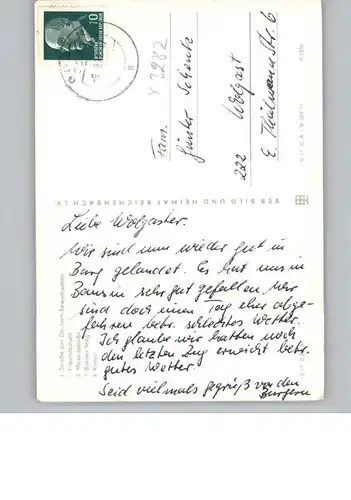 10
Y 3282
Fam.
Günter Schentz
222 Wolgast
E. Thälmann Str. 6
VEB BILD UND HEIMAT REICHENBACH I.V.
1 Straße der Deutsch-Sowjetischen
Freundschaft
4 Kanal
Liebe Wolgaster.
Wir sind nun wieder gut in
Burg gelandet. Es hat uns in
Bansin sehr gut gefallen. Wir
sind doch einen Tag eher abge-
fahren betr. schlechtes Wetter.
Ich glaube wir hatten noch
den letzten Zug erreicht betr.
gutes Wetter.
Seid vielmals gegrüß von den
Burgern